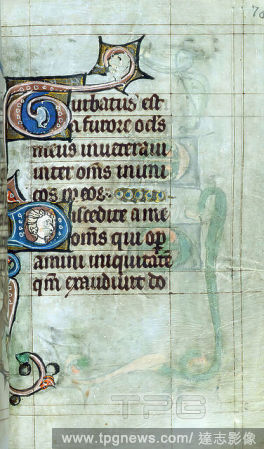 70
Turbatus est
a furore ocls
meus inveteravi
inter oms inimi
cos meos
Discedite a me
oms qui ope
amini iniquitate
qm exaudivit do
TPG
www.tpgnews.com/ 達志影像